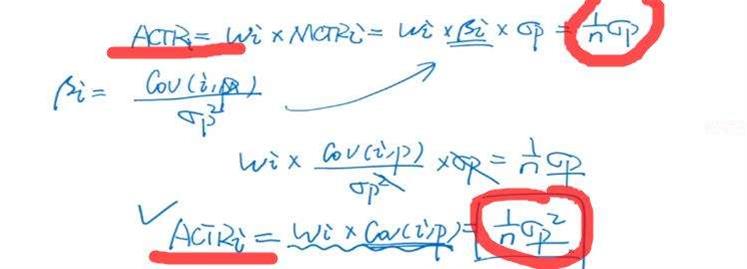 ACTRi = wi × MCTRi = wi × βi × σp = 1/n σp
βi = Cov(i,p)/σp²
wi × Cov(i,p)/σp² × σp = 1/n σp
✓ ACTRi = wi × Cov(i,p) = 1/n σp²